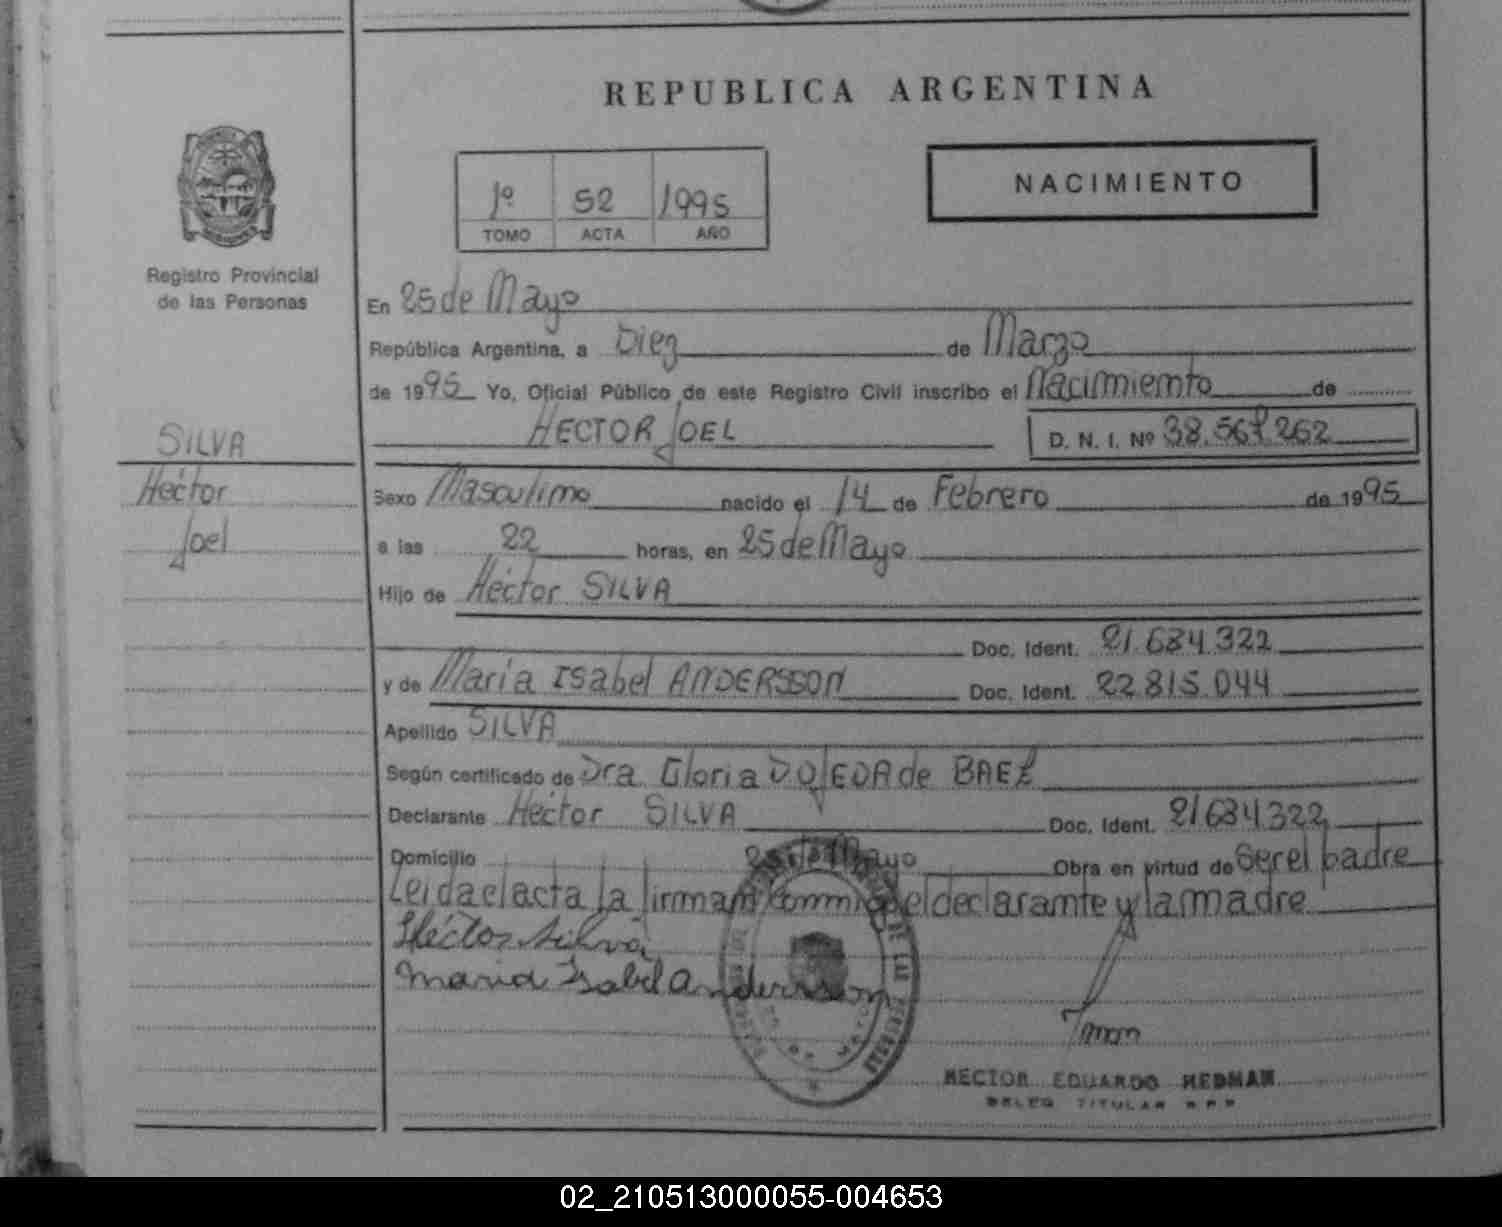 REPUBLICA ARGENTINA
1º 52 1995
TOMO ACTA AÑO
NACIMIENTO
Registro Provincial
de las Personas
En 25 de Mayo
República Argentina, a Diez de Marzo
de 1995 Yo, Oficial Público de este Registro Civil inscribo el Nacimiento de
HECTOR JOEL D. N. I. Nº 38.567.262
SILVA
Héctor
Joel
Sexo Masculino nacido el 14 de Febrero de 1995
a las 22 horas, en 25 de Mayo
Hijo de Héctor SILVA
Doc. Ident. 21.634.322
y de María Isabel ANDERSSON Doc. Ident. 22.815.044
Apellido SILVA
Según certificado de Dra. Gloria D. OJEDA de BAEZ
Declarante Héctor SILVA Doc. Ident. 21634322
Domicilio 25 de Mayo Obra en virtud de ser el padre
Leida el acta la firman conmigo el declarante y la madre
Héctor Silva
Maria Isabel Andersson
HECTOR EDUARDO HEDMAN
DELEG TITULAR R P P
02_210513000055-004653